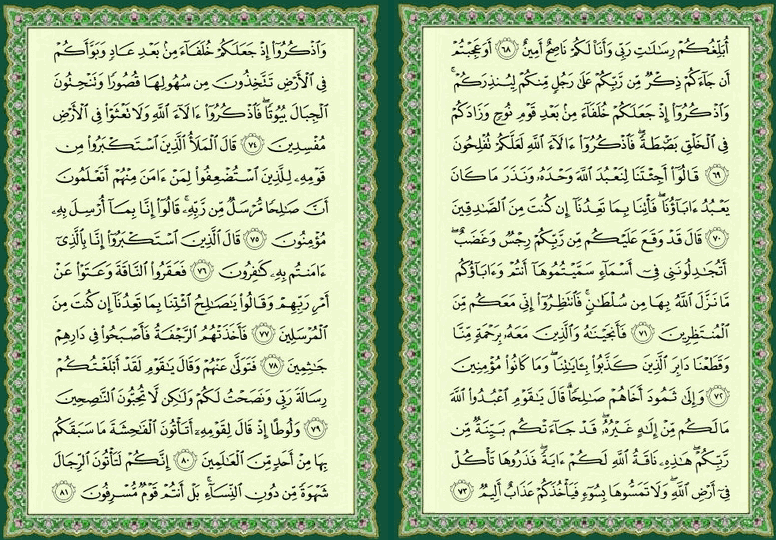 أُبَلِّغُكُمْ رِسَٰلَٰتِ رَبِّى وَأَنَا۠ لَكُمْ نَاصِحٌ أَمِينٌ ٦٨ أَوَعَجِبْتُمْ
أَن جَآءَكُمْ ذِكْرٌ مِّن رَّبِّكُمْ عَلَىٰ رَجُلٍ مِّنكُمْ لِيُنذِرَكُمْ ۚ
وَٱذْكُرُوٓا۟ إِذْ جَعَلَكُمْ خُلَفَآءَ مِنۢ بَعْدِ قَوْمِ نُوحٍ وَزَادَكُمْ
فِى ٱلْخَلْقِ بَصْۜطَةً ۖ فَٱذْكُرُوٓا۟ ءَالَآءَ ٱللَّهِ لَعَلَّكُمْ تُفْلِحُونَ
٦٩ قَالُوٓا۟ أَجِئْتَنَا لِنَعْبُدَ ٱللَّهَ وَحْدَهُۥ وَنَذَرَ مَا كَانَ
يَعْبُدُ ءَابَآؤُنَا ۖ فَأْتِنَا بِمَا تَعِدُنَآ إِن كُنتَ مِنَ ٱلصَّٰدِقِينَ
٧٠ قَالَ قَدْ وَقَعَ عَلَيْكُم مِّن رَّبِّكُمْ رِجْسٌ وَغَضَبٌ ۖ
أَتُجَٰدِلُونَنِى فِىٓ أَسْمَآءٍ سَمَّيْتُمُوهَآ أَنتُمْ وَءَابَآؤُكُم
مَّا نَزَّلَ ٱللَّهُ بِهَا مِن سُلْطَٰنٍ ۚ فَٱنتَظِرُوٓا۟ إِنِّى مَعَكُم مِّنَ
ٱلْمُنتَظِرِينَ ٧١ فَأَنجَيْنَٰهُ وَٱلَّذِينَ مَعَهُۥ بِرَحْمَةٍ مِّنَّا
وَقَطَعْنَا دَابِرَ ٱلَّذِينَ كَذَّبُوا۟ بِـَٔايَٰتِنَا ۖ وَمَا كَانُوا۟ مُؤْمِنِينَ
٧٢ وَإِلَىٰ ثَمُودَ أَخَاهُمْ صَٰلِحًا ۗ قَالَ يَٰقَوْمِ ٱعْبُدُوا۟ ٱللَّهَ
مَا لَكُم مِّنْ إِلَٰهٍ غَيْرُهُۥ ۖ قَدْ جَآءَتْكُم بَيِّنَةٌ مِّن
رَّبِّكُمْ ۖ هَٰذِهِۦ نَاقَةُ ٱللَّهِ لَكُمْ ءَايَةً ۖ فَذَرُوهَا تَأْكُلْ
فِىٓ أَرْضِ ٱللَّهِ ۖ وَلَا تَمَسُّوهَا بِسُوٓءٍ فَيَأْخُذَكُمْ عَذَابٌ أَلِيمٌ ٧٣
وَٱذْكُرُوٓا۟ إِذْ جَعَلَكُمْ خُلَفَآءَ مِنۢ بَعْدِ عَادٍ وَبَوَّأَكُمْ
فِى ٱلْأَرْضِ تَتَّخِذُونَ مِن سُهُولِهَا قُصُورًا وَتَنْحِتُونَ
ٱلْجِبَالَ بُيُوتًا ۖ فَٱذْكُرُوٓا۟ ءَالَآءَ ٱللَّهِ وَلَا تَعْثَوْا۟ فِى ٱلْأَرْضِ
مُفْسِدِينَ ٧٤ قَالَ ٱلْمَلَأُ ٱلَّذِينَ ٱسْتَكْبَرُوا۟ مِن
قَوْمِهِۦ لِلَّذِينَ ٱسْتُضْعِفُوا۟ لِمَنْ ءَامَنَ مِنْهُمْ أَتَعْلَمُونَ
أَنَّ صَٰلِحًا مُّرْسَلٌ مِّن رَّبِّهِۦ ۚ قَالُوٓا۟ إِنَّا بِمَآ أُرْسِلَ بِهِۦ
مُؤْمِنُونَ ٧٥ قَالَ ٱلَّذِينَ ٱسْتَكْبَرُوٓا۟ إِنَّا بِٱلَّذِىٓ
ءَامَنتُم بِهِۦ كَٰفِرُونَ ٧٦ فَعَقَرُوا۟ ٱلنَّاقَةَ وَعَتَوْا۟ عَنْ
أَمْرِ رَبِّهِمْ وَقَالُوا۟ يَٰصَٰلِحُ ٱئْتِنَا بِمَا تَعِدُنَآ إِن كُنتَ مِنَ
ٱلْمُرْسَلِينَ ٧٧ فَأَخَذَتْهُمُ ٱلرَّجْفَةُ فَأَصْبَحُوا۟ فِى دَارِهِمْ
جَٰثِمِينَ ٧٨ فَتَوَلَّىٰ عَنْهُمْ وَقَالَ يَٰقَوْمِ لَقَدْ أَبْلَغْتُكُمْ
رِسَالَةَ رَبِّى وَنَصَحْتُ لَكُمْ وَلَٰكِن لَّا تُحِبُّونَ ٱلنَّٰصِحِينَ
٧٩ وَلُوطًا إِذْ قَالَ لِقَوْمِهِۦٓ أَتَأْتُونَ ٱلْفَٰحِشَةَ مَا سَبَقَكُم
بِهَا مِنْ أَحَدٍ مِّنَ ٱلْعَٰلَمِينَ ٨٠ إِنَّكُمْ لَتَأْتُونَ ٱلرِّجَالَ
شَهْوَةً مِّن دُونِ ٱلنِّسَآءِ ۚ بَلْ أَنتُمْ قَوْمٌ مُّسْرِفُونَ ٨١